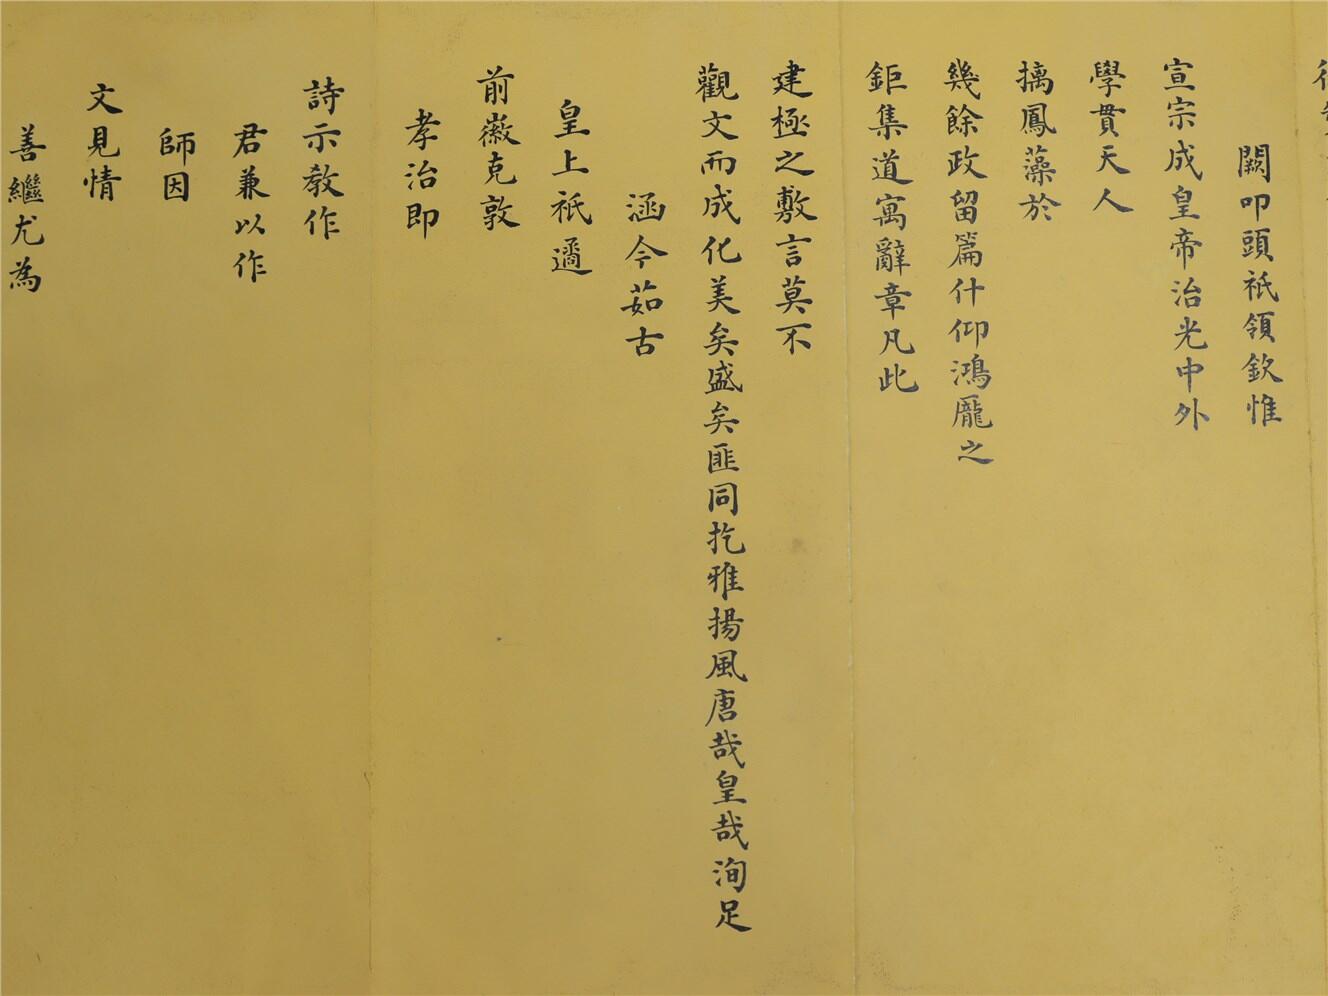 闕叩頭祇領欽惟
宣宗成皇帝治光中外
學貫天人
摛鳳藻於
幾餘政留篇什仰鴻龐之
鉅集道寓辭章凡此
建極之敷言莫不
觀文而成化美矣盛矣匪同扢雅揚風唐哉皇哉洵足
涵今茹古
皇上祇遹
前徽克敦
孝治即
詩示教作
君兼以作
師因
文見情
善繼尤為